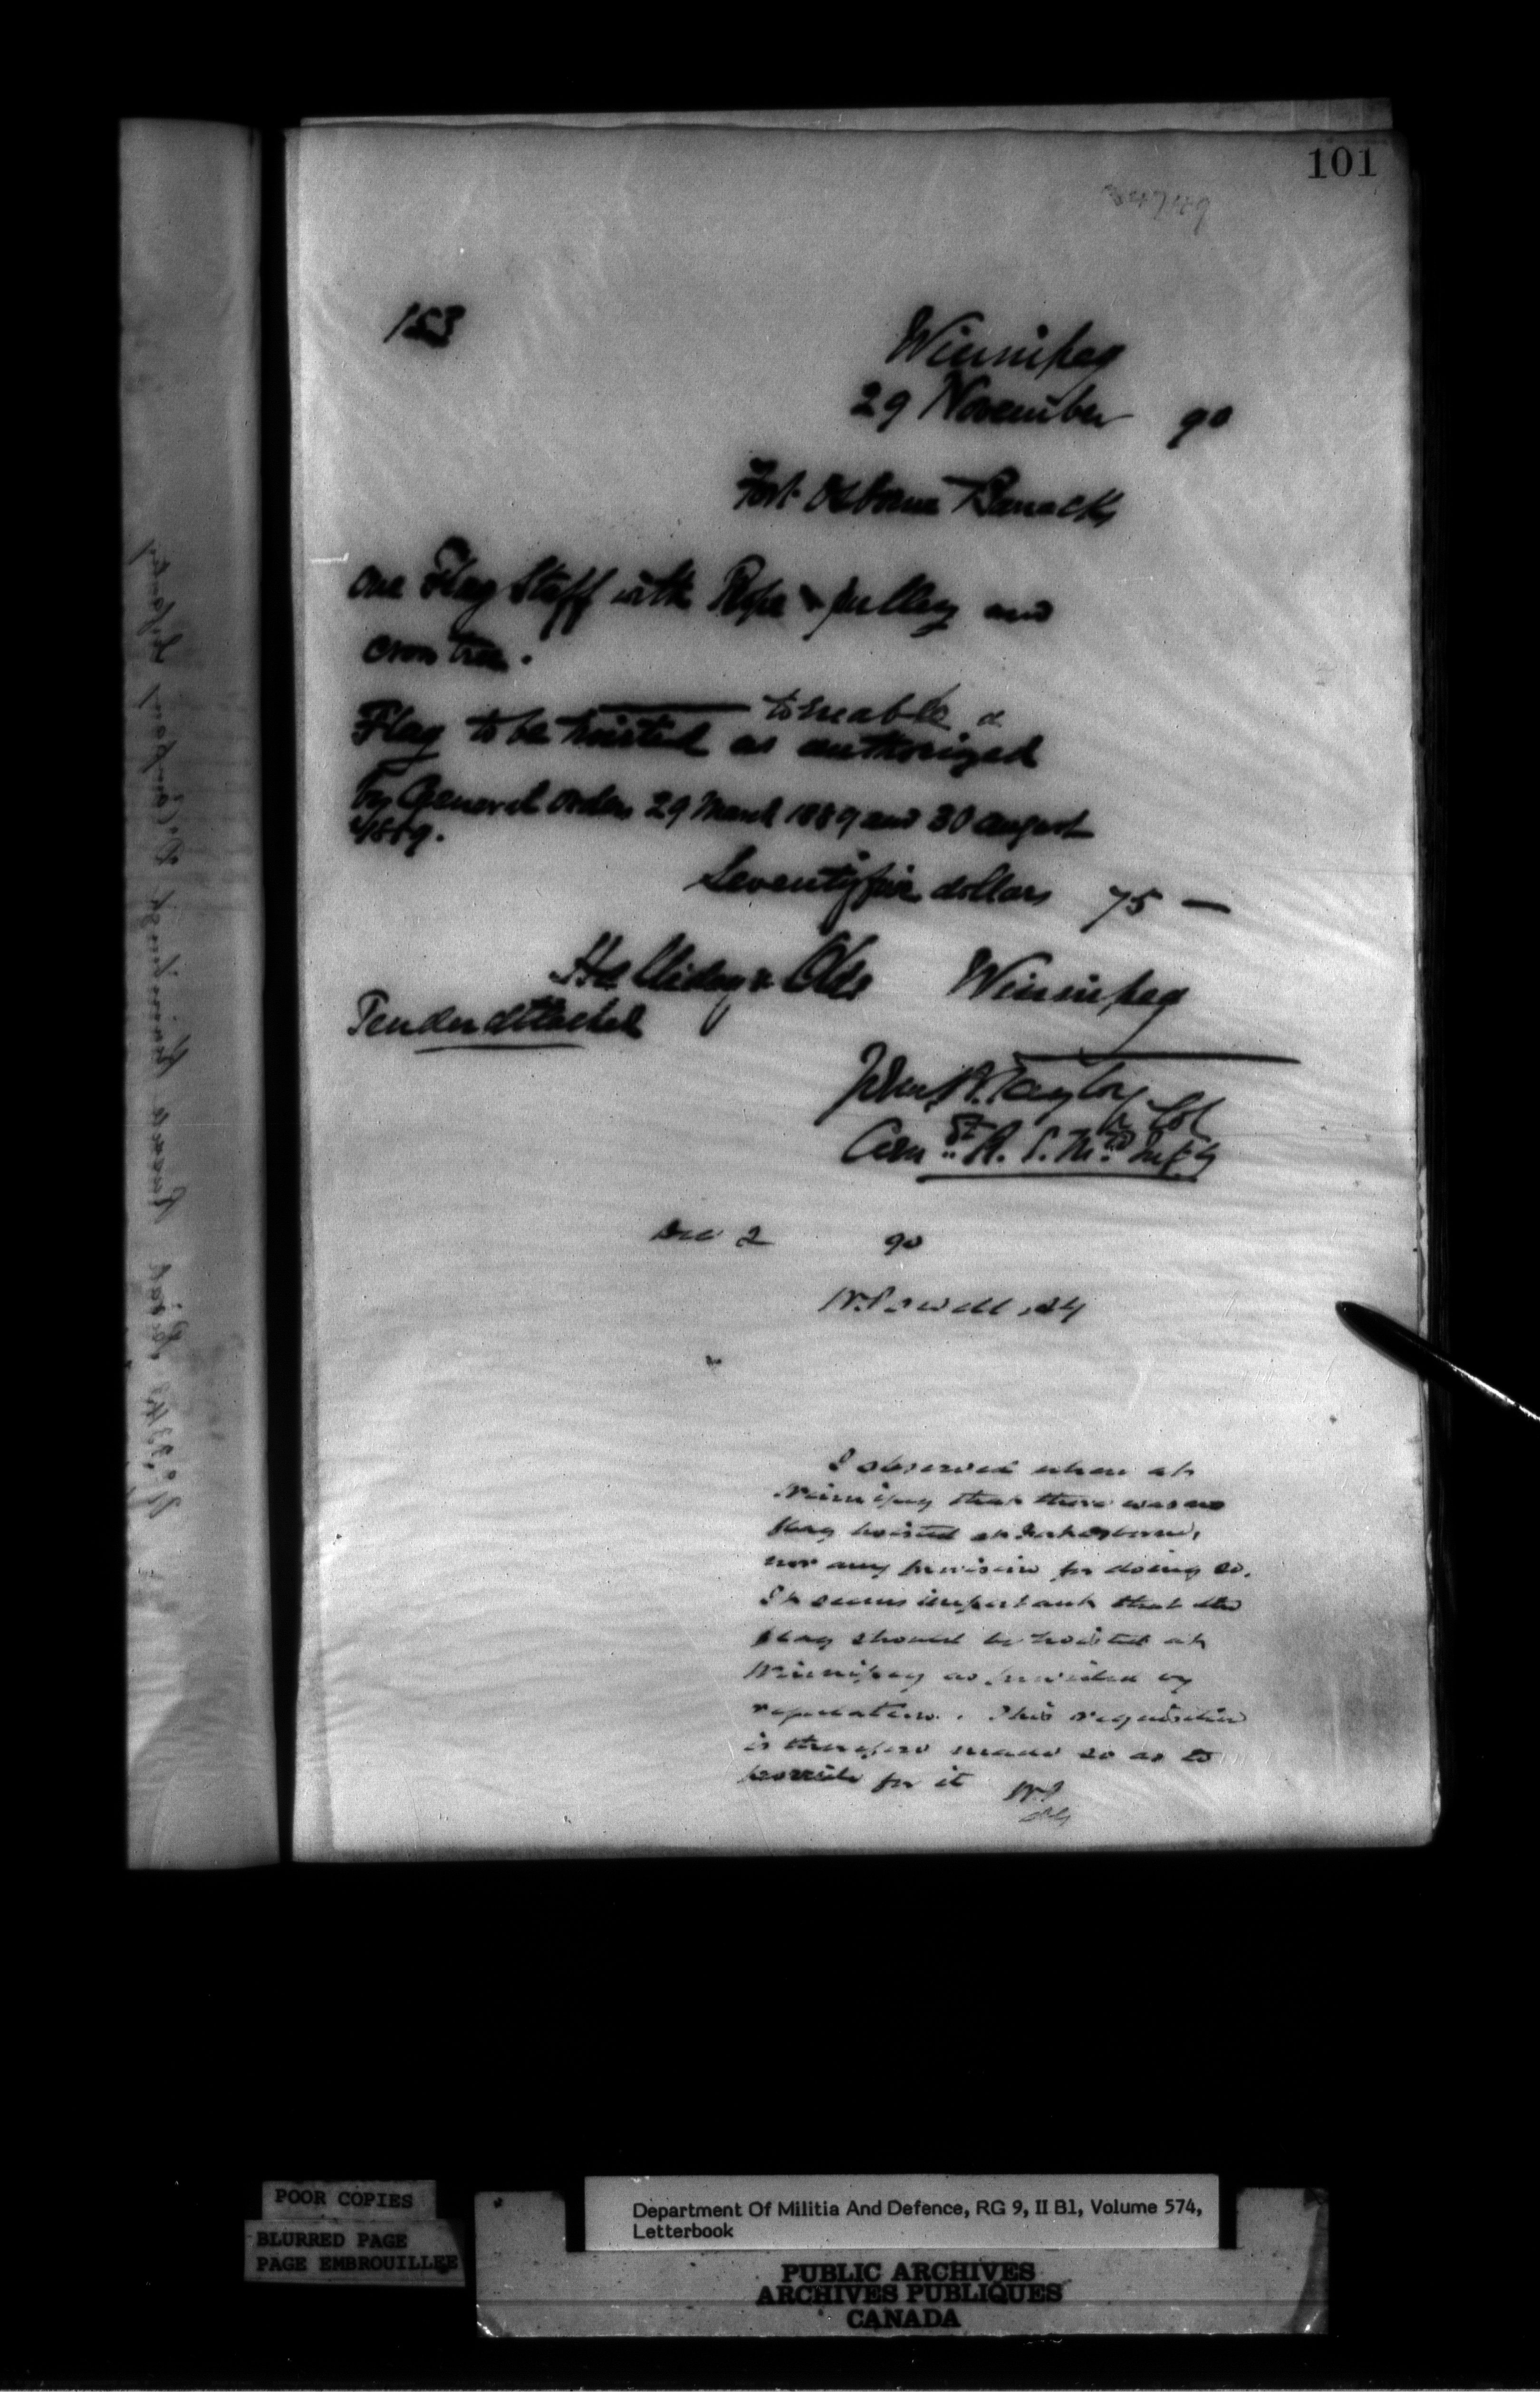 101
153
Winnipeg
29 November 90
Fort Osborne Barracks
One Flag Staff with Rope & pulley and
cross tree.
to enable a
Flag to be hoisted as authorized
by General orders 29 March 1889 and 30 august
1889.
Seventyfive dollars 75 —
Halliday & Olds Winnipeg
Tender attached
John A. Taylor
Lt Col
Comdt R. S. Mtd Infy
Dec 2 90
W. Powell, AG
I observed when at
Winnipeg that there was no
flag hoisted at Fort Osborne,
nor any provision for doing so.
It seems important that the
flag should be hoisted at
Winnipeg as provided by
regulations. This requisition
is therefore made so as to
provide for it WP
AG
POOR COPIES
BLURRED PAGE
PAGE EMBROUILLEE
Department Of Militia And Defence, RG 9, II B1, Volume 574,
Letterbook
PUBLIC ARCHIVES
ARCHIVES PUBLIQUES
CANADA